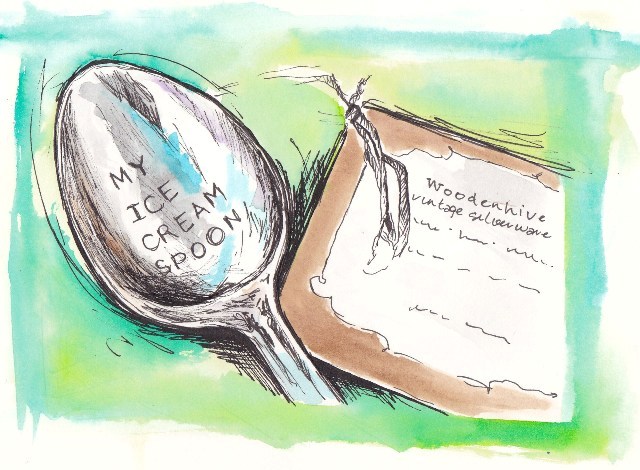 MY
ICE
CREAM
SPOON
Woodenhive
vintage silverware